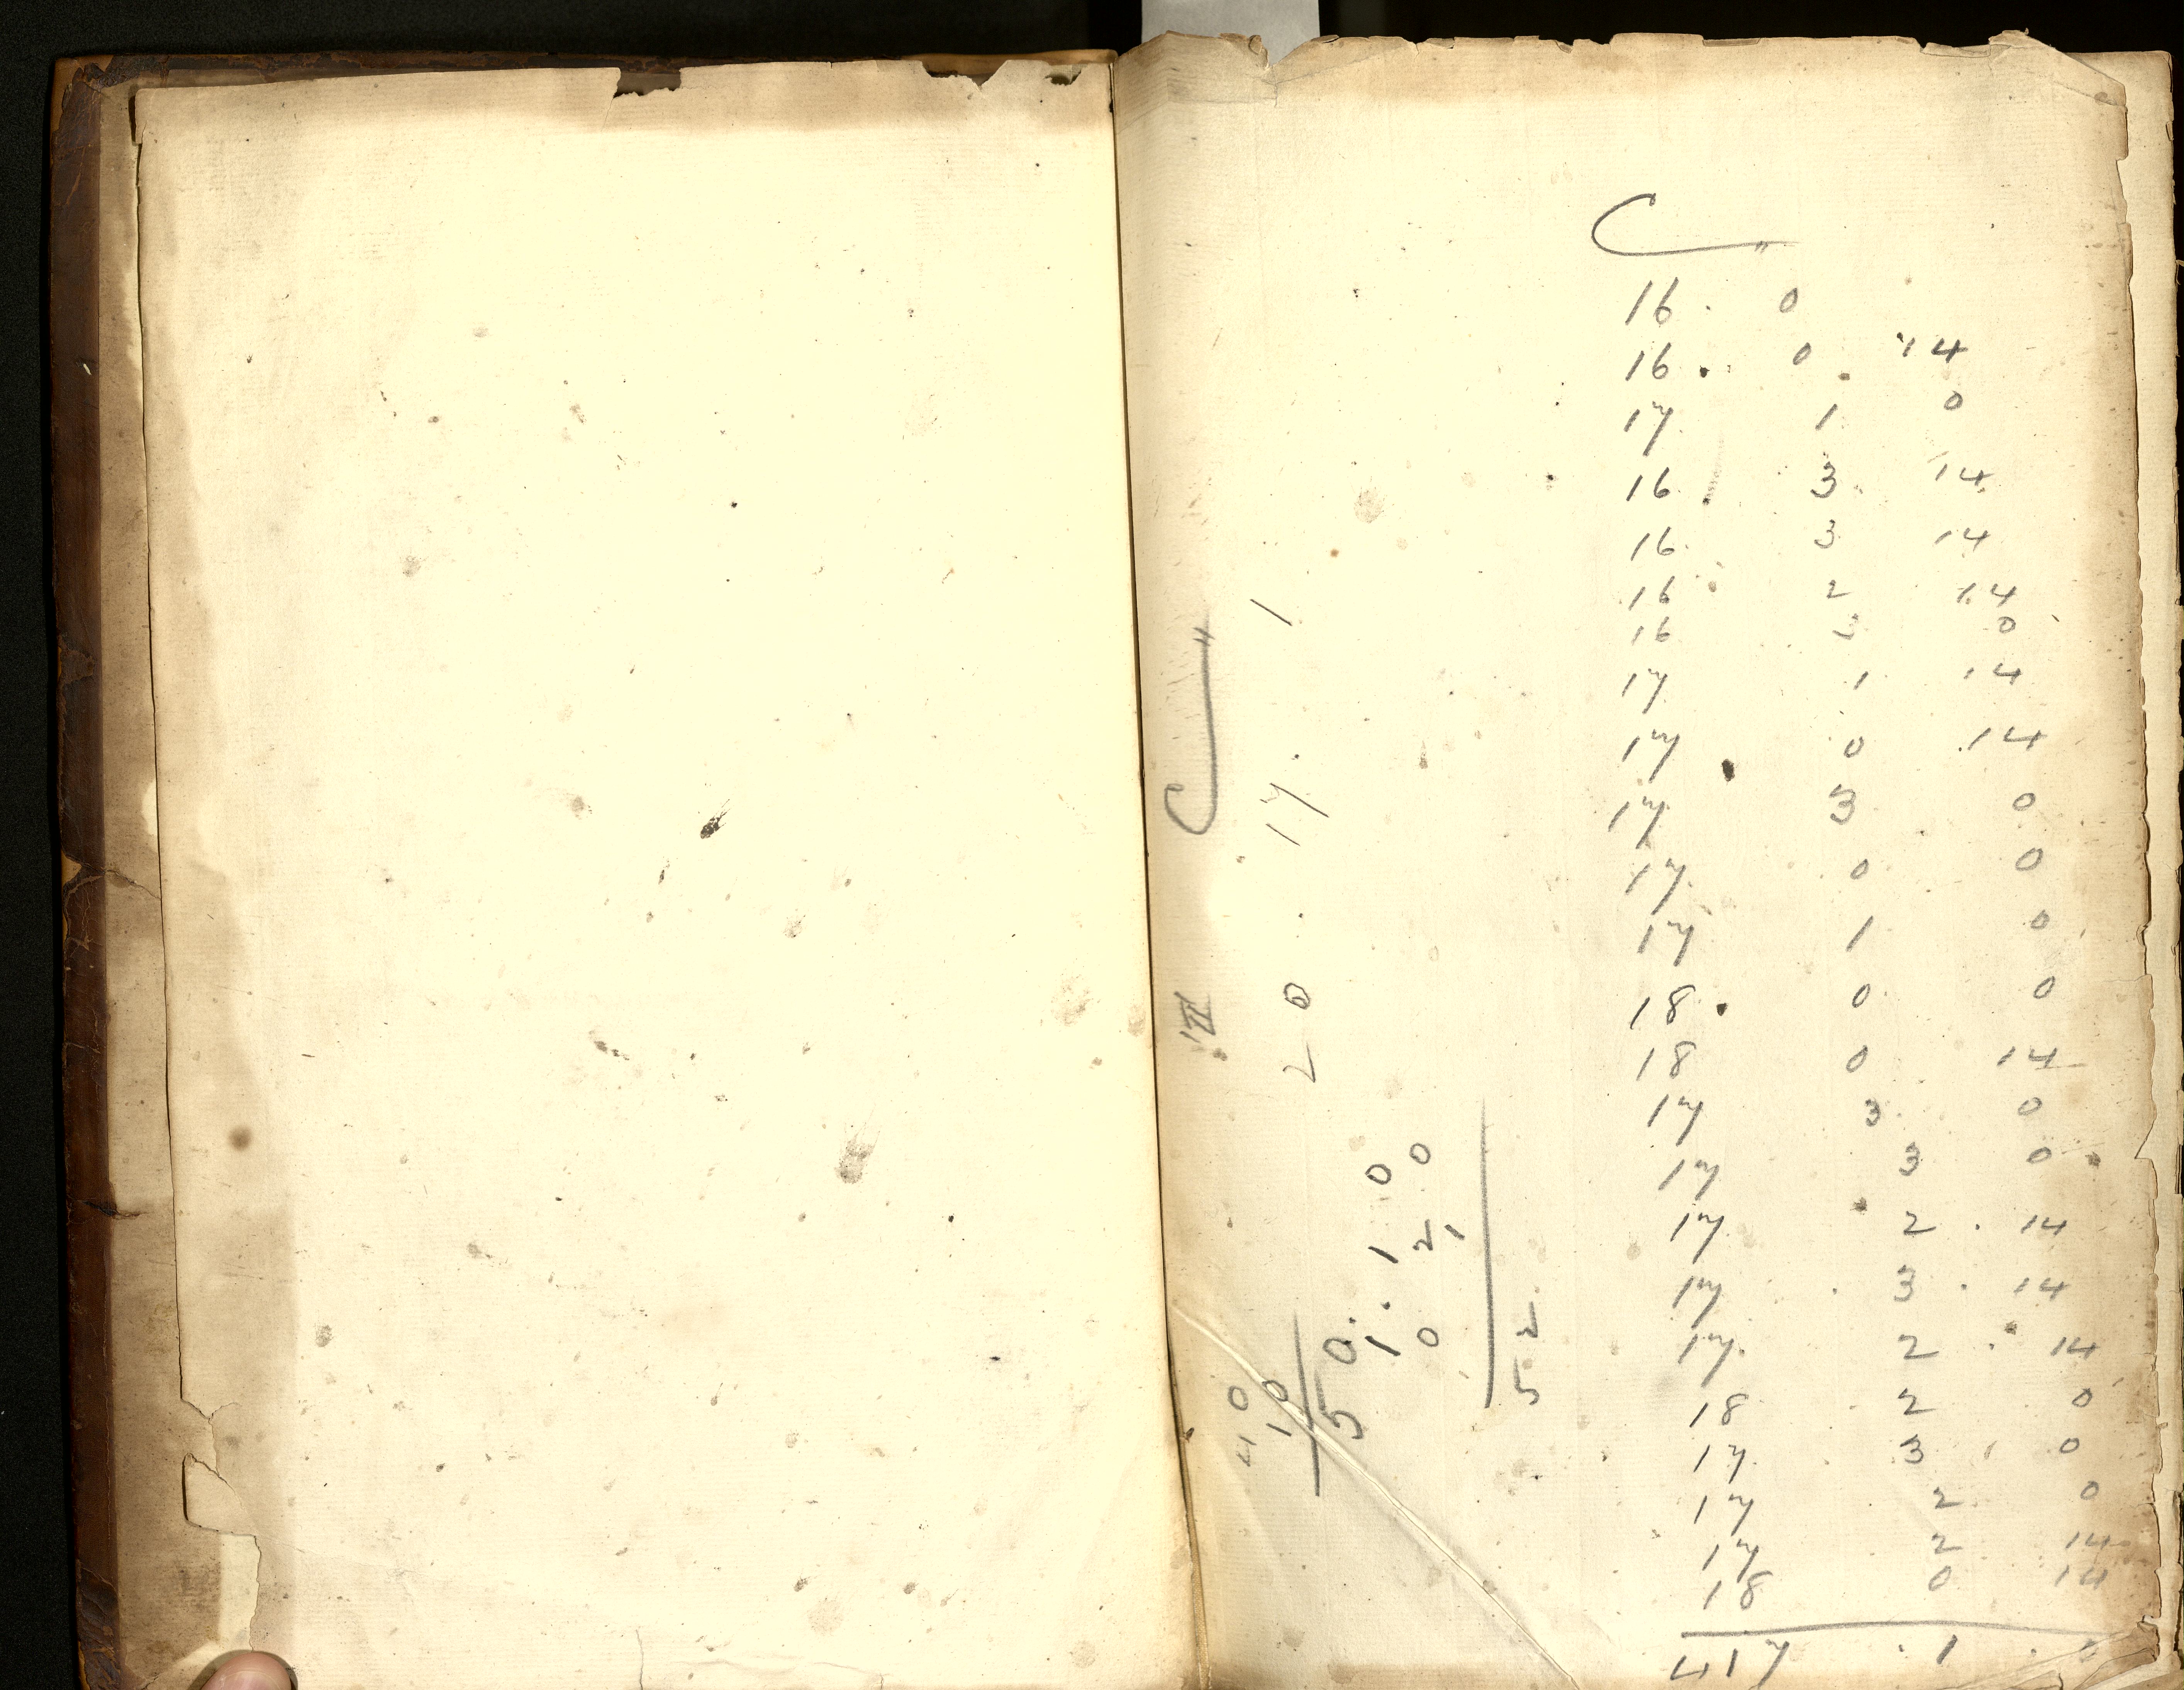 C"
16 . 0
16 . 0 14
17 1 0
16 3 14
16 3 14
16 2 14
16 3 0
17 1 14
17 0 14
17 3 0
17 0 0
17 1 0
18 . 0 0
18 0 14
17 3 0
17 3 0
17 2 . 14
17 . 3 . 14
17 2 . 14
18 2 0
17 3 0
17 2 0
17 2 14
18 0 14
417 . 1 .
C"
20 . 17 . 1
40
10
50.
1 . 1 0
0 2 0
1
52